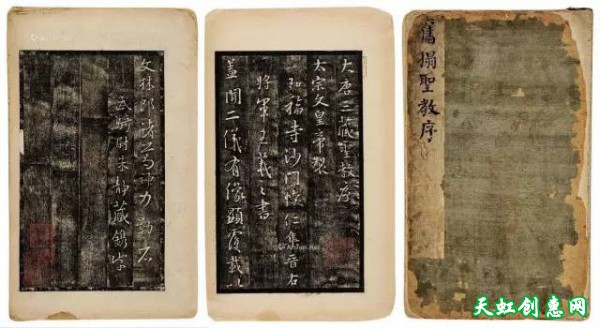 舊搨聖教序
大唐三藏聖教序
太宗文皇帝製
弘福寺沙門懷仁集晉右
將軍王羲之書
蓋聞二儀有像顯覆載以
文林郎諸葛神力勒石
武騎尉朱靜藏鐫字
天虹创惠网